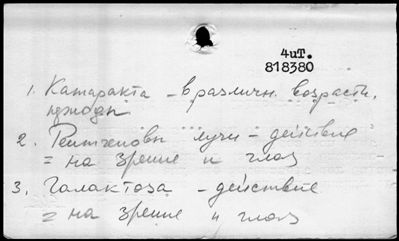 4иТ.
818380
1. Катаракта – в различн. возрастн.
периоды
2. Рентгеновы лучи – действие
= на зрение и глаз
3. Галактоза – действие
= на зрение и глаз